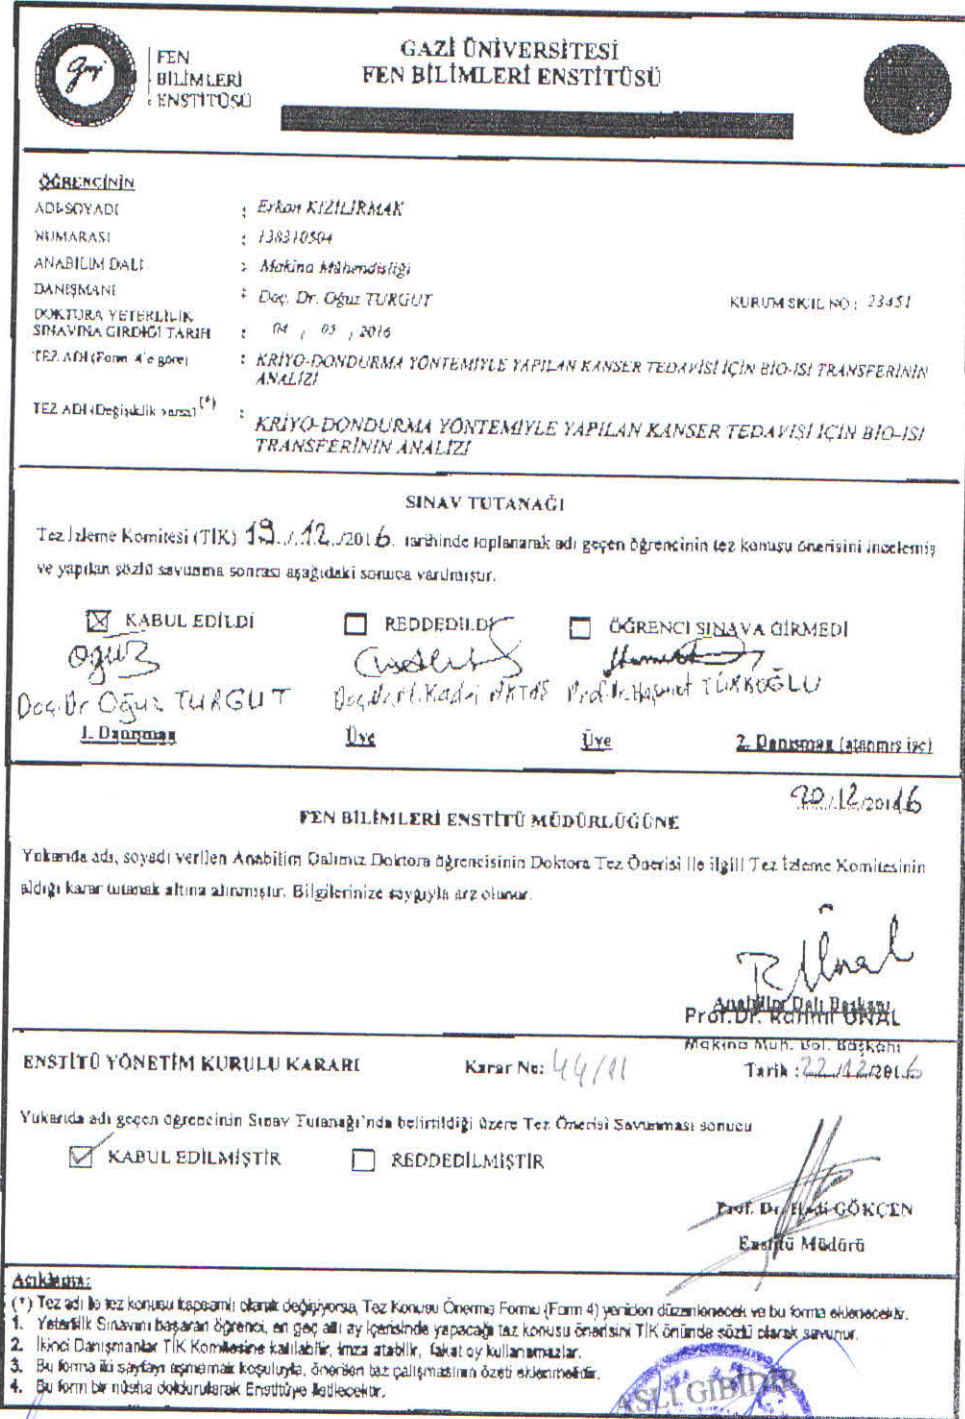 FEN
BİLİMLERİ
ENSTİTÜSÜ
GAZİ ÜNİVERSİTESİ
FEN BİLİMLERİ ENSTİTÜSÜ
ÖĞRENCİNİN
ADI-SOYADI : Erkan KIZILIRMAK
NUMARASI : 138310504
ANABİLİM DALI : Makina Mühendisliği
DANIŞMANI : Doç. Dr. Oğuz TURGUT KURUM SİCİL NO : 23451
DOKTORA YETERLİLİK
SINAVINA GİRDİĞİ TARİH : 04 / 05 / 2016
TEZ ADI (Form 4'e göre) : KRİYO-DONDURMA YÖNTEMİYLE YAPILAN KANSER TEDAVİSİ İÇİN BİO-ISI TRANSFERİNİN
ANALİZİ
TEZ ADI (Değişiklik varsa) (*) : KRİYO-DONDURMA YÖNTEMİYLE YAPILAN KANSER TEDAVİSİ İÇİN BİO-ISI
TRANSFERİNİN ANALİZİ
SINAV TUTANAĞI
Tez İzleme Komitesi (TİK) 19../.12../2016. tarihinde toplanarak adı geçen öğrencinin tez konusu önerisini incelemiş
ve yapılan sözlü savunma sonrası aşağıdaki sonuca varılmıştır.
KABUL EDİLDİ REDDEDİLDİ ÖĞRENCİ SINAVA GİRMEDİ
Oğuz
Doç.Dr Oğuz TURGUT Doç.Dr.M.Kadri AKTAŞ Prof.Dr.Haşmet TÜRKOĞLU
1. Danışman Üye Üye 2. Danışman (atanmış ise)
20/12/2016
FEN BİLİMLERİ ENSTİTÜ MÜDÜRLÜĞÜNE
Yukarıda adı, soyadı verilen Anabilim Dalımız Doktora öğrencisinin Doktora Tez Önerisi ile ilgili Tez İzleme Komitesinin
aldığı karar tutanak altına alınmıştır. Bilgilerinize saygıyla arz olunur.
R Ünal
Anabilim Dalı Başkanı
Prof.Dr. Rahmi ÜNAL
Makina Müh. Böl. Başkanı
ENSTİTÜ YÖNETİM KURULU KARARI Karar No: 44/11 Tarih : 22/12/2016
Yukarıda adı geçen öğrencinin Sınav Tutanağı'nda belirtildiği üzere Tez Önerisi Savunması sonucu
KABUL EDİLMİŞTİR REDDEDİLMİŞTİR
Prof. Dr. Hadi GÖKÇEN
Enstitü Müdürü
Açıklama:
(*) Tez adı ile tez konusu kapsamlı olarak değişiyorsa, Tez Konusu Önerme Formu (Form 4) yeniden düzenlenecek ve bu forma eklenecektir.
1. Yeterlilik Sınavını başaran öğrenci, en geç altı ay içerisinde yapacağı tez konusu önerisini TİK önünde sözlü olarak savunur.
2. İkinci Danışmanlar TİK Komitesine katılabilir, imza atabilir, fakat oy kullanamazlar.
3. Bu forma iki sayfayı aşmamak koşuluyla, önerilen tez çalışmasının özeti eklenmelidir.
4. Bu form bir nüsha doldurularak Enstitüye iletilecektir.
ASLI GİBİDİR